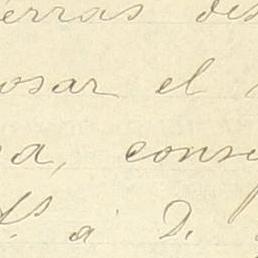 erras des
osar el
a, conse
f.s a D.